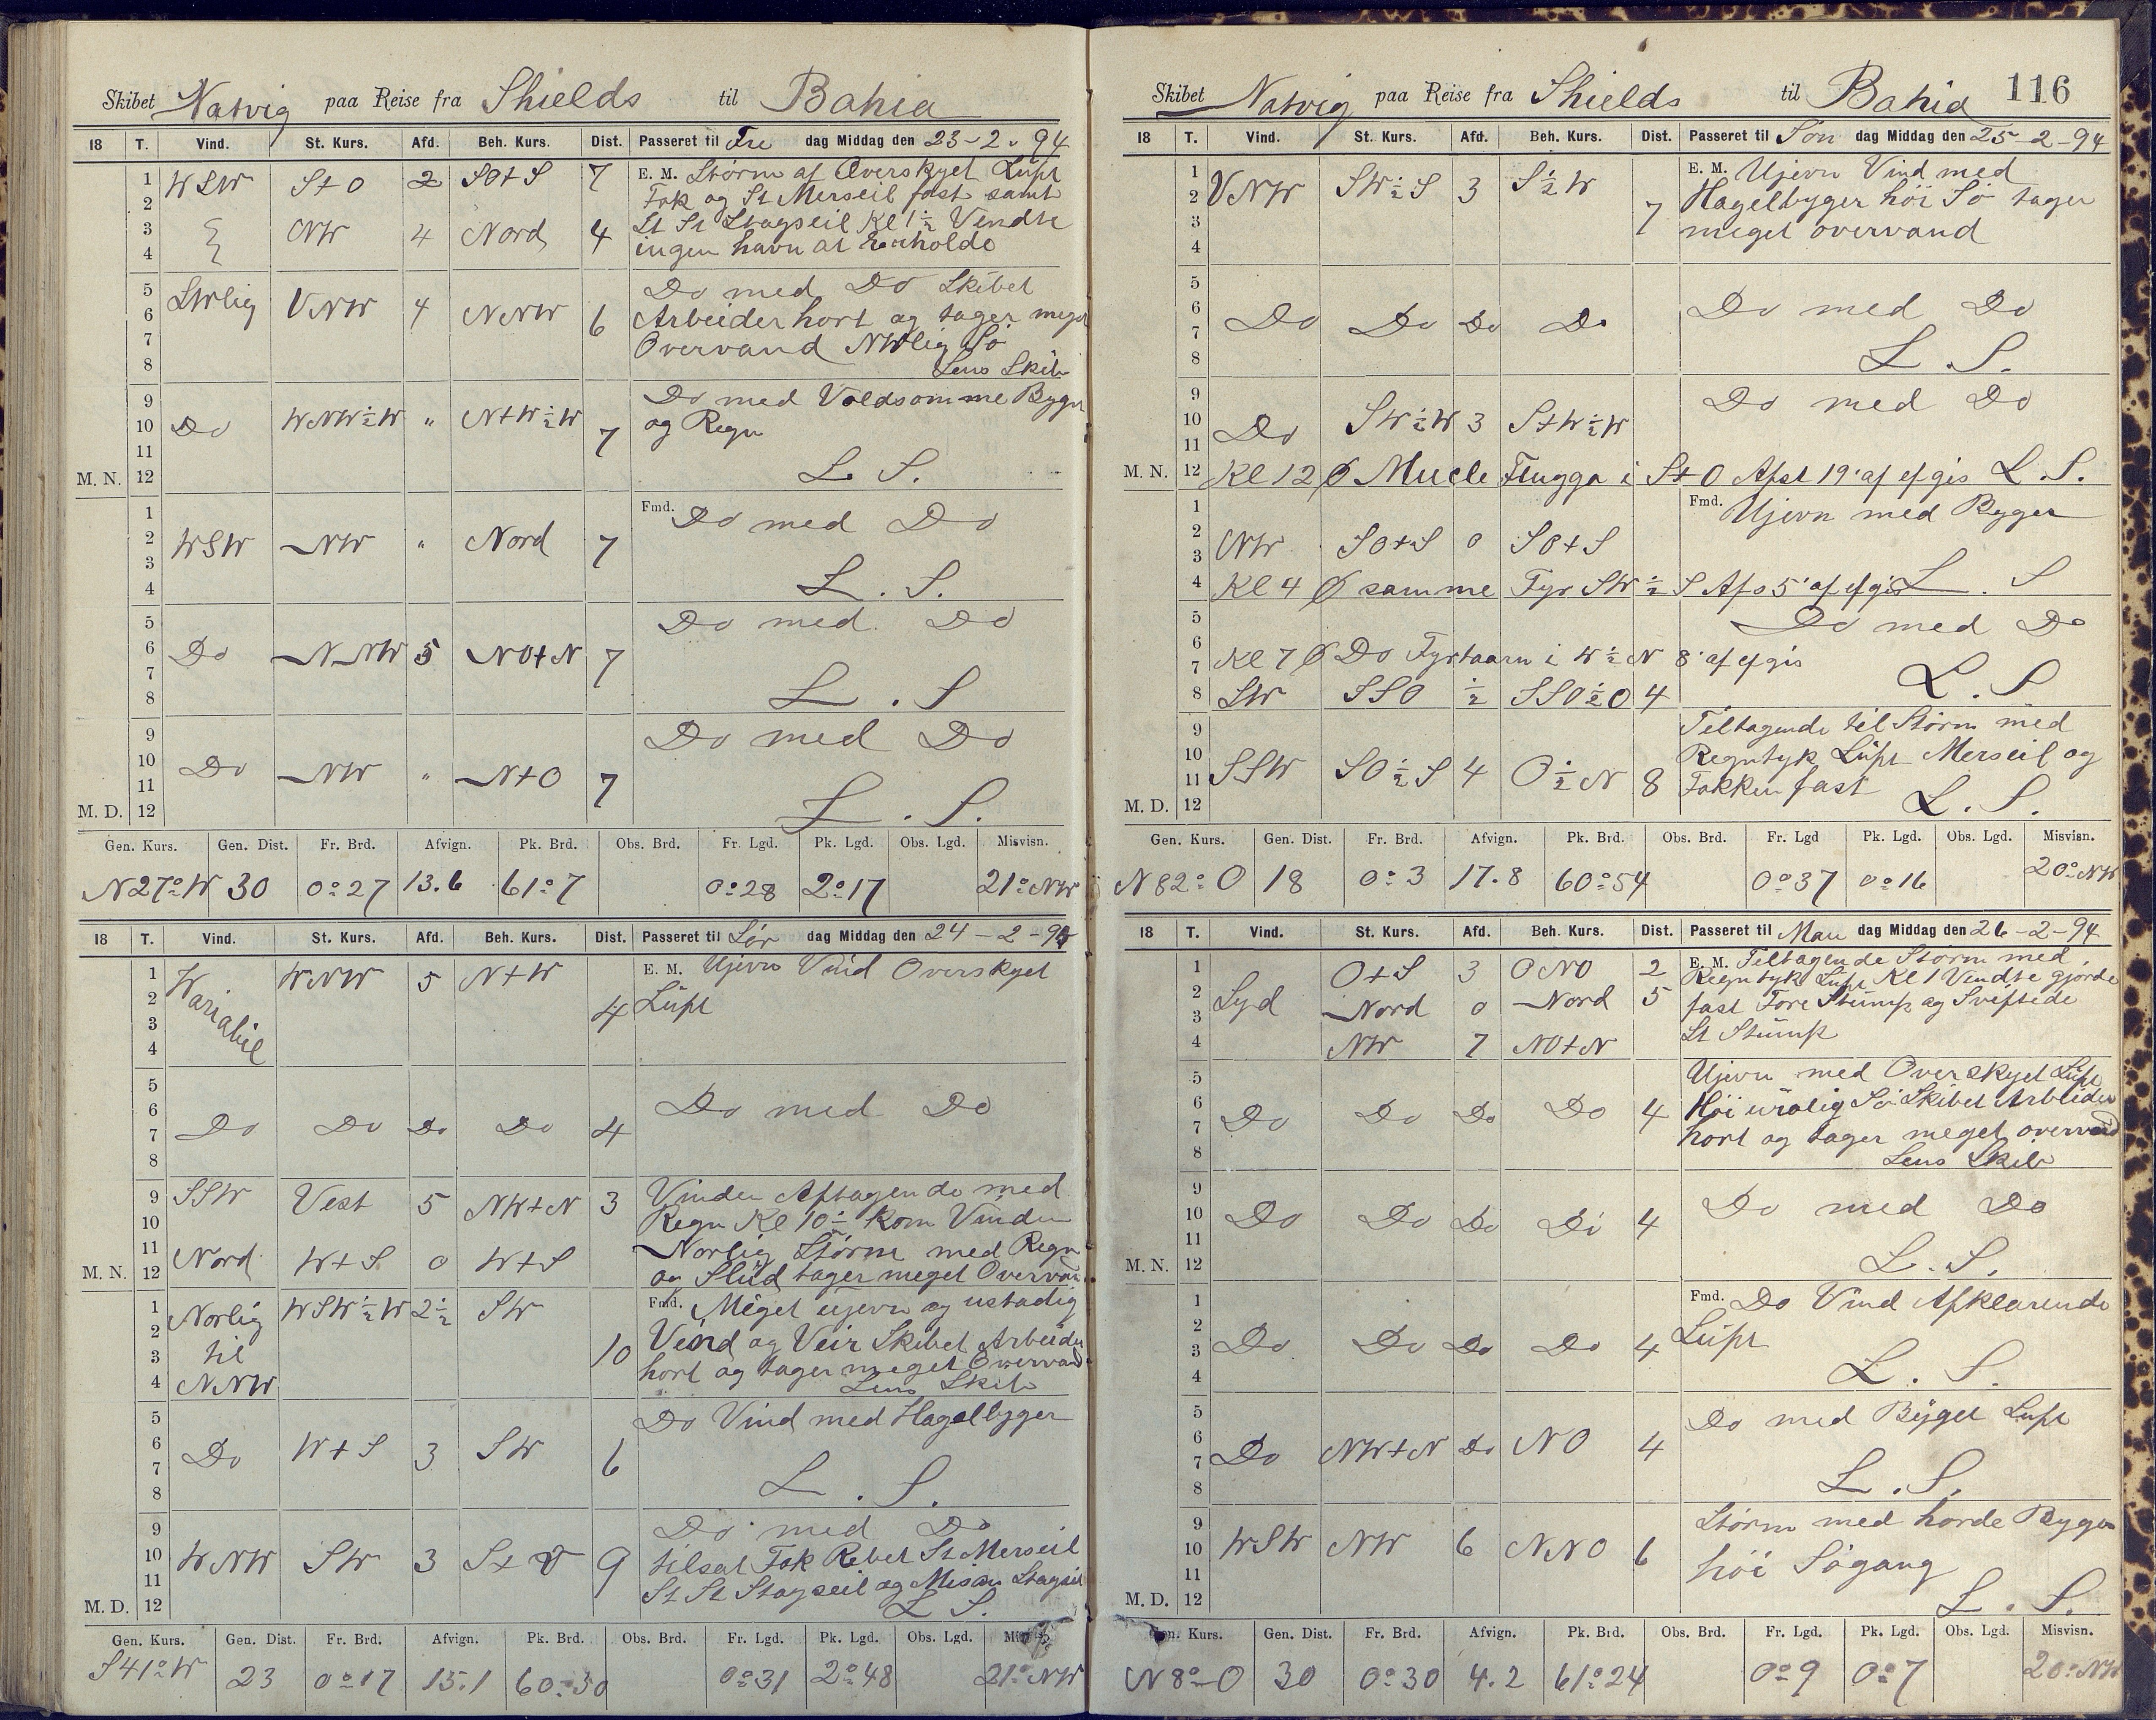 Skibet Natvig paa Reise fra Shields til Bahia
18 T. Vind. St. Kurs. Afd. Beh. Kurs. Dist. Passeret til Fre dag Middag den 23-2-94
1 WSW S+O 2 SO+S 7 E. M. Storm af Overskyet Luft
2 Fok og St Merseil fast samt
3 NW 4 Nord 4 St St Stagseil Kl 1½ Vendte
4 ingen havn at Erholde
5 SWlig VNW 4 NNW 6 Do med Do Skibet
6 Arbeider hort og tager meget
7 Overvand NWlig Sø
8 Lens Skib
9 Do WNW½W " N+W½W 7 Do med Voldsomme Byger
10 og Regn
11
M. N. 12 L. S.
1 WSW NW " Nord 7 Fmd. Do med Do
2
3
4 L. S.
5 Do NNW 5 NO+N 7 Do med Do
6
7
8 L. S
9 Do NW " N+O 7 Do med Do
10
11
M. D. 12 L. S.
Gen. Kurs. Gen. Dist. Fr. Brd. Afvign. Pk. Brd. Obs. Brd. Fr. Lgd. Pk. Lgd. Obs. Lgd. Misvisn.
N27°W 30 0°27 13.6 61°7 0°28 2°17 21°NW
18 T. Vind. St. Kurs. Afd. Beh. Kurs. Dist. Passeret til Lør dag Middag den 24-2-94
1 Wariabil WNW 5 N+W 4 E. M. Ujevn Vind Overskyet
2 Luft
3
4
5 Do Do Do Do 4 Do med Do
6
7
8
9 SSW Vest 5 NW+N 3 Vinden Aftagende med
10 Regn Kl 10½ kom Vinden
11 Nord W+S 0 W+S Norlig Storm med Regn
M. N. 12 og Slud tager meget Overvan
1 Norlig WSW½W 2½ SW 10 Fmd. Meget ujevn og ustadig
2 til Vind og Veir Skibet Arbeider
3 NNW hort og tager meget Overvand
4 Lens Skib
5 Do W+S 3 SW 6 Do Vind med Hagelbyger
6
7
8 L. S.
9 WNW SW 3 S+V 9 Do med Do
10 tilsat Fok Rebet St Merseil
11 St St Stagseil og Misan Stagseil
M. D. 12 L S.
Gen. Kurs. Gen. Dist. Fr. Brd. Afvign. Pk. Brd. Obs. Brd. Fr. Lgd. Pk. Lgd. Obs. Lgd.
S41°W 23 0°17 15.1 60°50 0°31 2°48 21°NW
Skibet Natvig paa Reise fra Shields til Bahia 116
18 T. Vind. St. Kurs. Afd. Beh. Kurs. Dist. Passeret til Søn dag Middag den 25-2-94
1 VNW SW½S 3 S½W 7 E. M. Ujevn Vind med
2 Hagelbyger høi Sø tager
3 meget overvand
4
5 Do Do Do Do Do med Do
6
7
8 L. S.
9 Do SW½W 3 S+W½W Do med Do
10
11
M. N. 12 Kl 12 Ø Mucle Flugga i S+O Afst 19' af efgis L. S.
1 NW SO+S 0 SO+S Fmd. Ujevn med Byger
2
3
4 Kl 4 Ø samme Fyr SW½S Afs 5' af efgis L. S
5 Do med Do
6
7 Kl 7 Ø Do Fyrtaarn i W½N 8' af efgis
8 SW SSO ½ SSO½O 4 L. S
9 SSW SO½S 4 O½N 8 Tiltagende til Storm med
10 Regntyk Luft Merseil og
11 Fokken fast
M. D. 12 L. S.
Gen. Kurs. Gen. Dist. Fr. Brd. Afvign. Pk. Brd. Obs. Brd. Fr. Lgd Pk. Lgd. Obs. Lgd. Misvisn.
N82°O 18 0°3 17.8 60°54 0°37 0°16 20°NW
18 T. Vind. St. Kurs. Afd. Beh. Kurs. Dist. Passeret til Man dag Middag den 26-2-94
1 Syd O+S 3 ONO 2 E. M. Tiltagende Storm med
2 Nord 0 Nord 5 Regntyk Luft Kl 1 Vendte gjorde
3 fast Fore Stump og Sveftede
4 NW 7 NO+N St Stump
5 Do Do Do Do 4 Ujevn med Overskyet Luft
6 Høi urolig Sø Skibet Arbeider
7 hort og tager meget overvand
8 Lens Skib
9 Do Do Do Do 4 Do med Do
10
11
M. N. 12 L. S.
1 Do Do Do Do 4 Fmd. Do Vind Afklarende
2 Luft
3
4 L. S.
5 Do NW+N Do NO 4 Do med Byget Luft
6
7
8 L. S.
9 WSW NW 6 NNO 6 Storm med horde Byger
10 høi Søgang
11
M. D. 12 L. S.
Gen. Kurs. Gen. Dist. Fr. Brd. Afvign. Pk. Brd. Obs. Brd. Fr. Lgd. Pk. Lgd. Obs. Lgd. Misvisn.
N8°O 30 0°30 4.2 61°24 0°9 0°7 20°NW